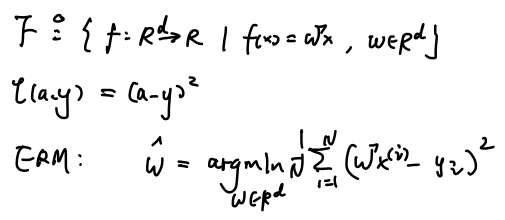 F ≜ { f: R^d → R | f(x) = w^T x , w∈R^d}
l(a,y) = (a-y)^2
ERM: ŵ = argmin_{w∈R^d} 1/N Σ_{i=1}^N (w^T x^(i) - y_i)^2